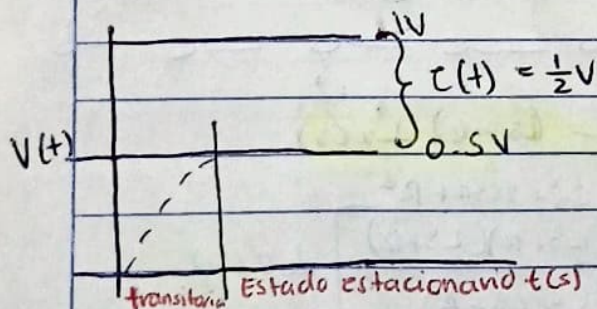 1V
τ(t) = 1/2 V
V(t)
0.5V
transitoria Estado estacionario t(s)